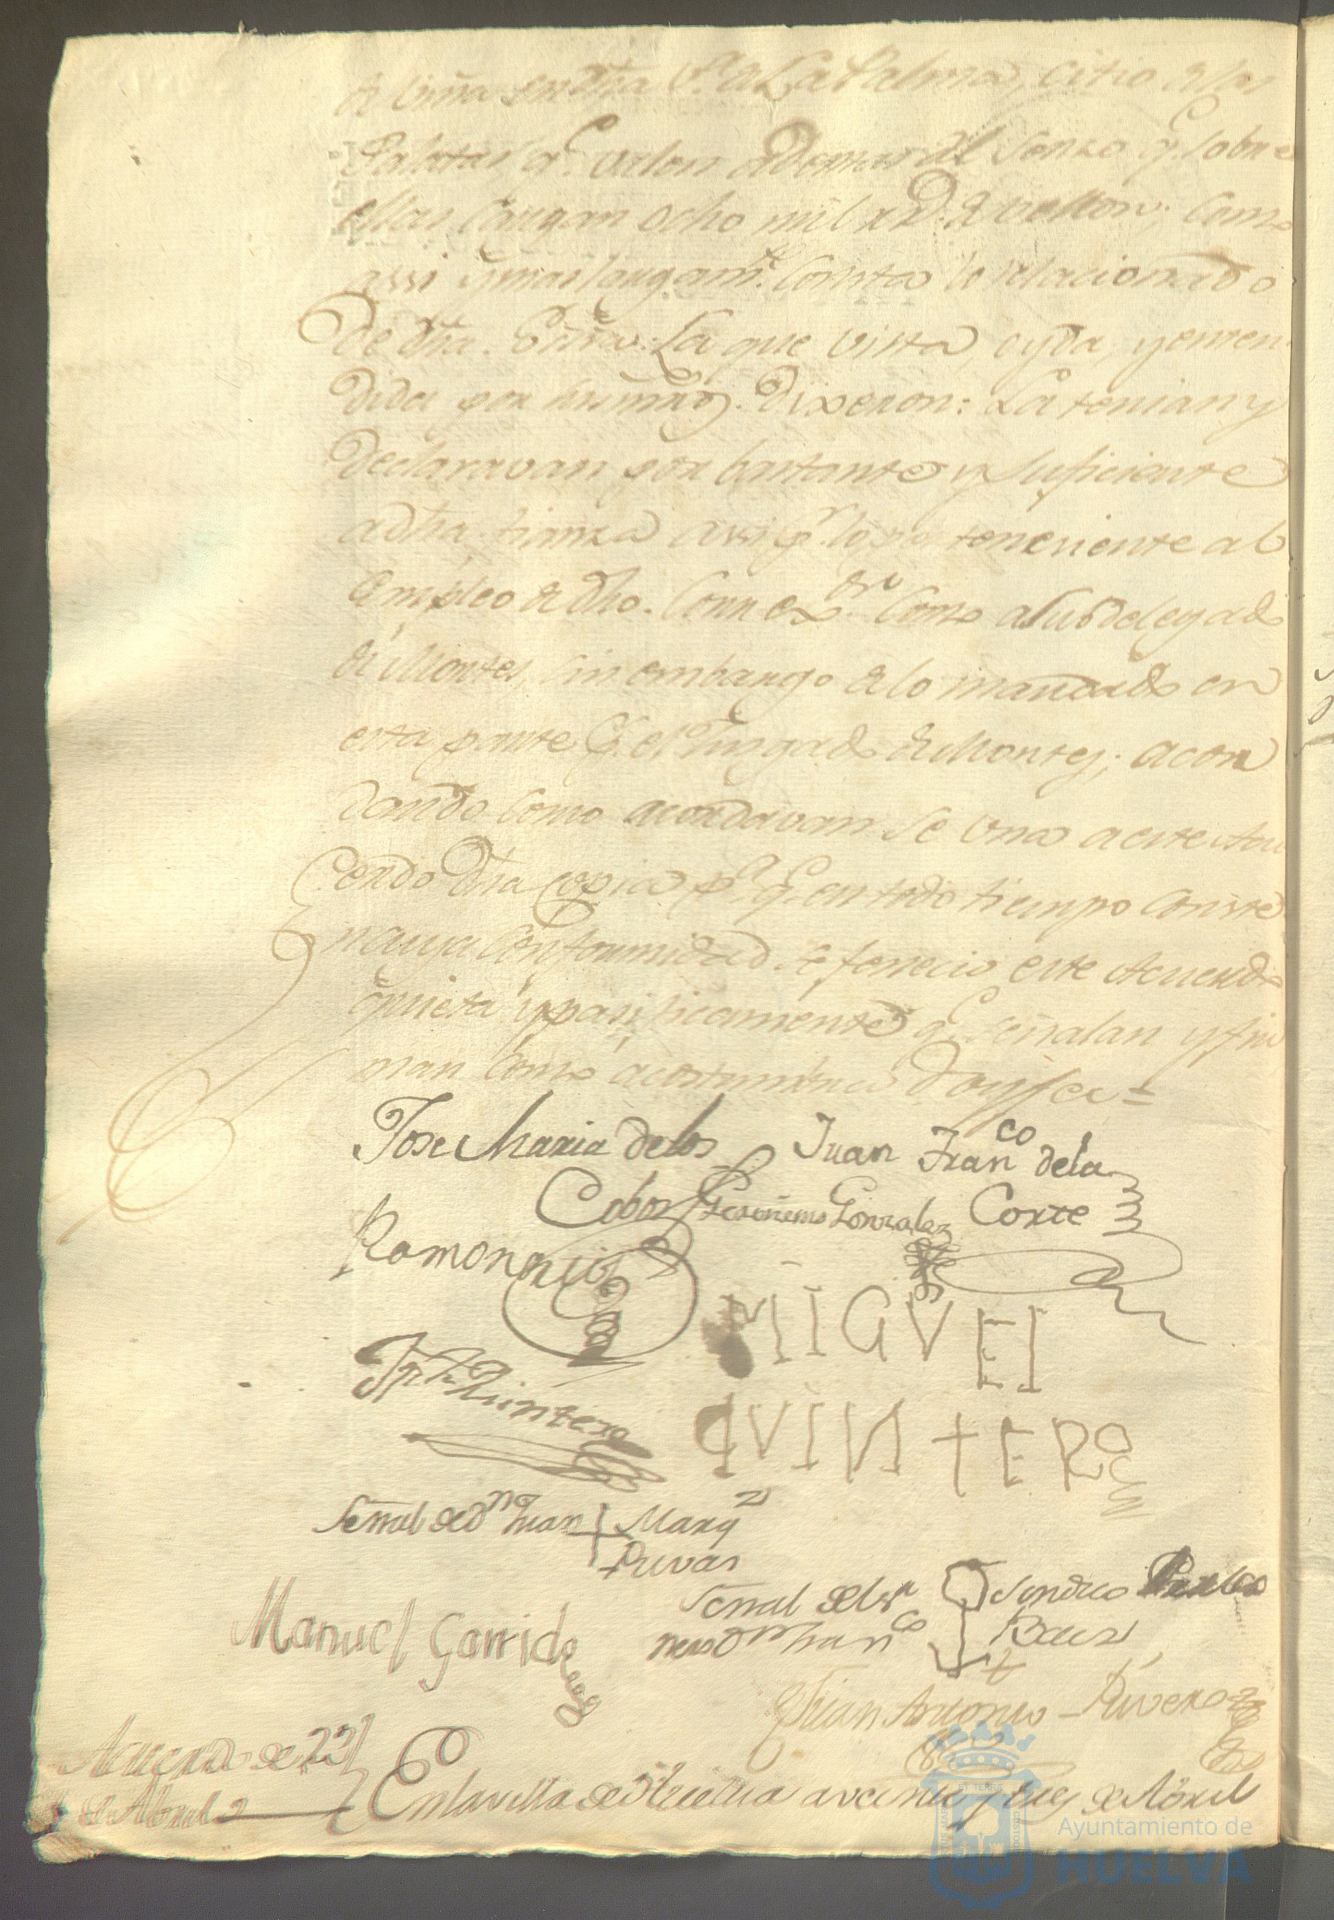 de viña en dha Vª. de La Palma, citio de las
Palatas qe. valen ademas del Senso qe. sobre
ellas Cargan ocho mil rs. Ds. de vellon; como
assi y mas largamte. consta lo relacionado
de dha. Escrra. La que vista, oyda, y enten-
dida por sus mrds. Dixeron: La tenian y
declaravan por bastante y suficiente
a dha. fianza assi pr. lo perteneciente al
empleo de dho. Correxor. como a Subdelegado
de Montes, sin embargo de lo mandado en
esta parte pr. el Juzgado de Montes; acor
dando como acordavan se una a este Acu
erdo dha copia pa. qe. en todo tiempo conste
en cuya conformidad se fenecio este Acuerdo
quieta y pasificamente qe. señalan y fir
man como acostumbran doy fee =
Jose Maria de los Juan Franco de la
Cobos Geronimo Gonzalez Corte
Ramon rio
MIGVEl
Quintero
QVINTERO
Señal de Dn Juan + Marqz
Rivas
Señal del Sr Sindico
nero Dn Franco Baez
Manuel Garrido
Juan Antonio Rivero
Acuerdo de 23
de Abril En la villa de Huelva a veinte y tres de Abril
Ayuntamiento de
HUELVA